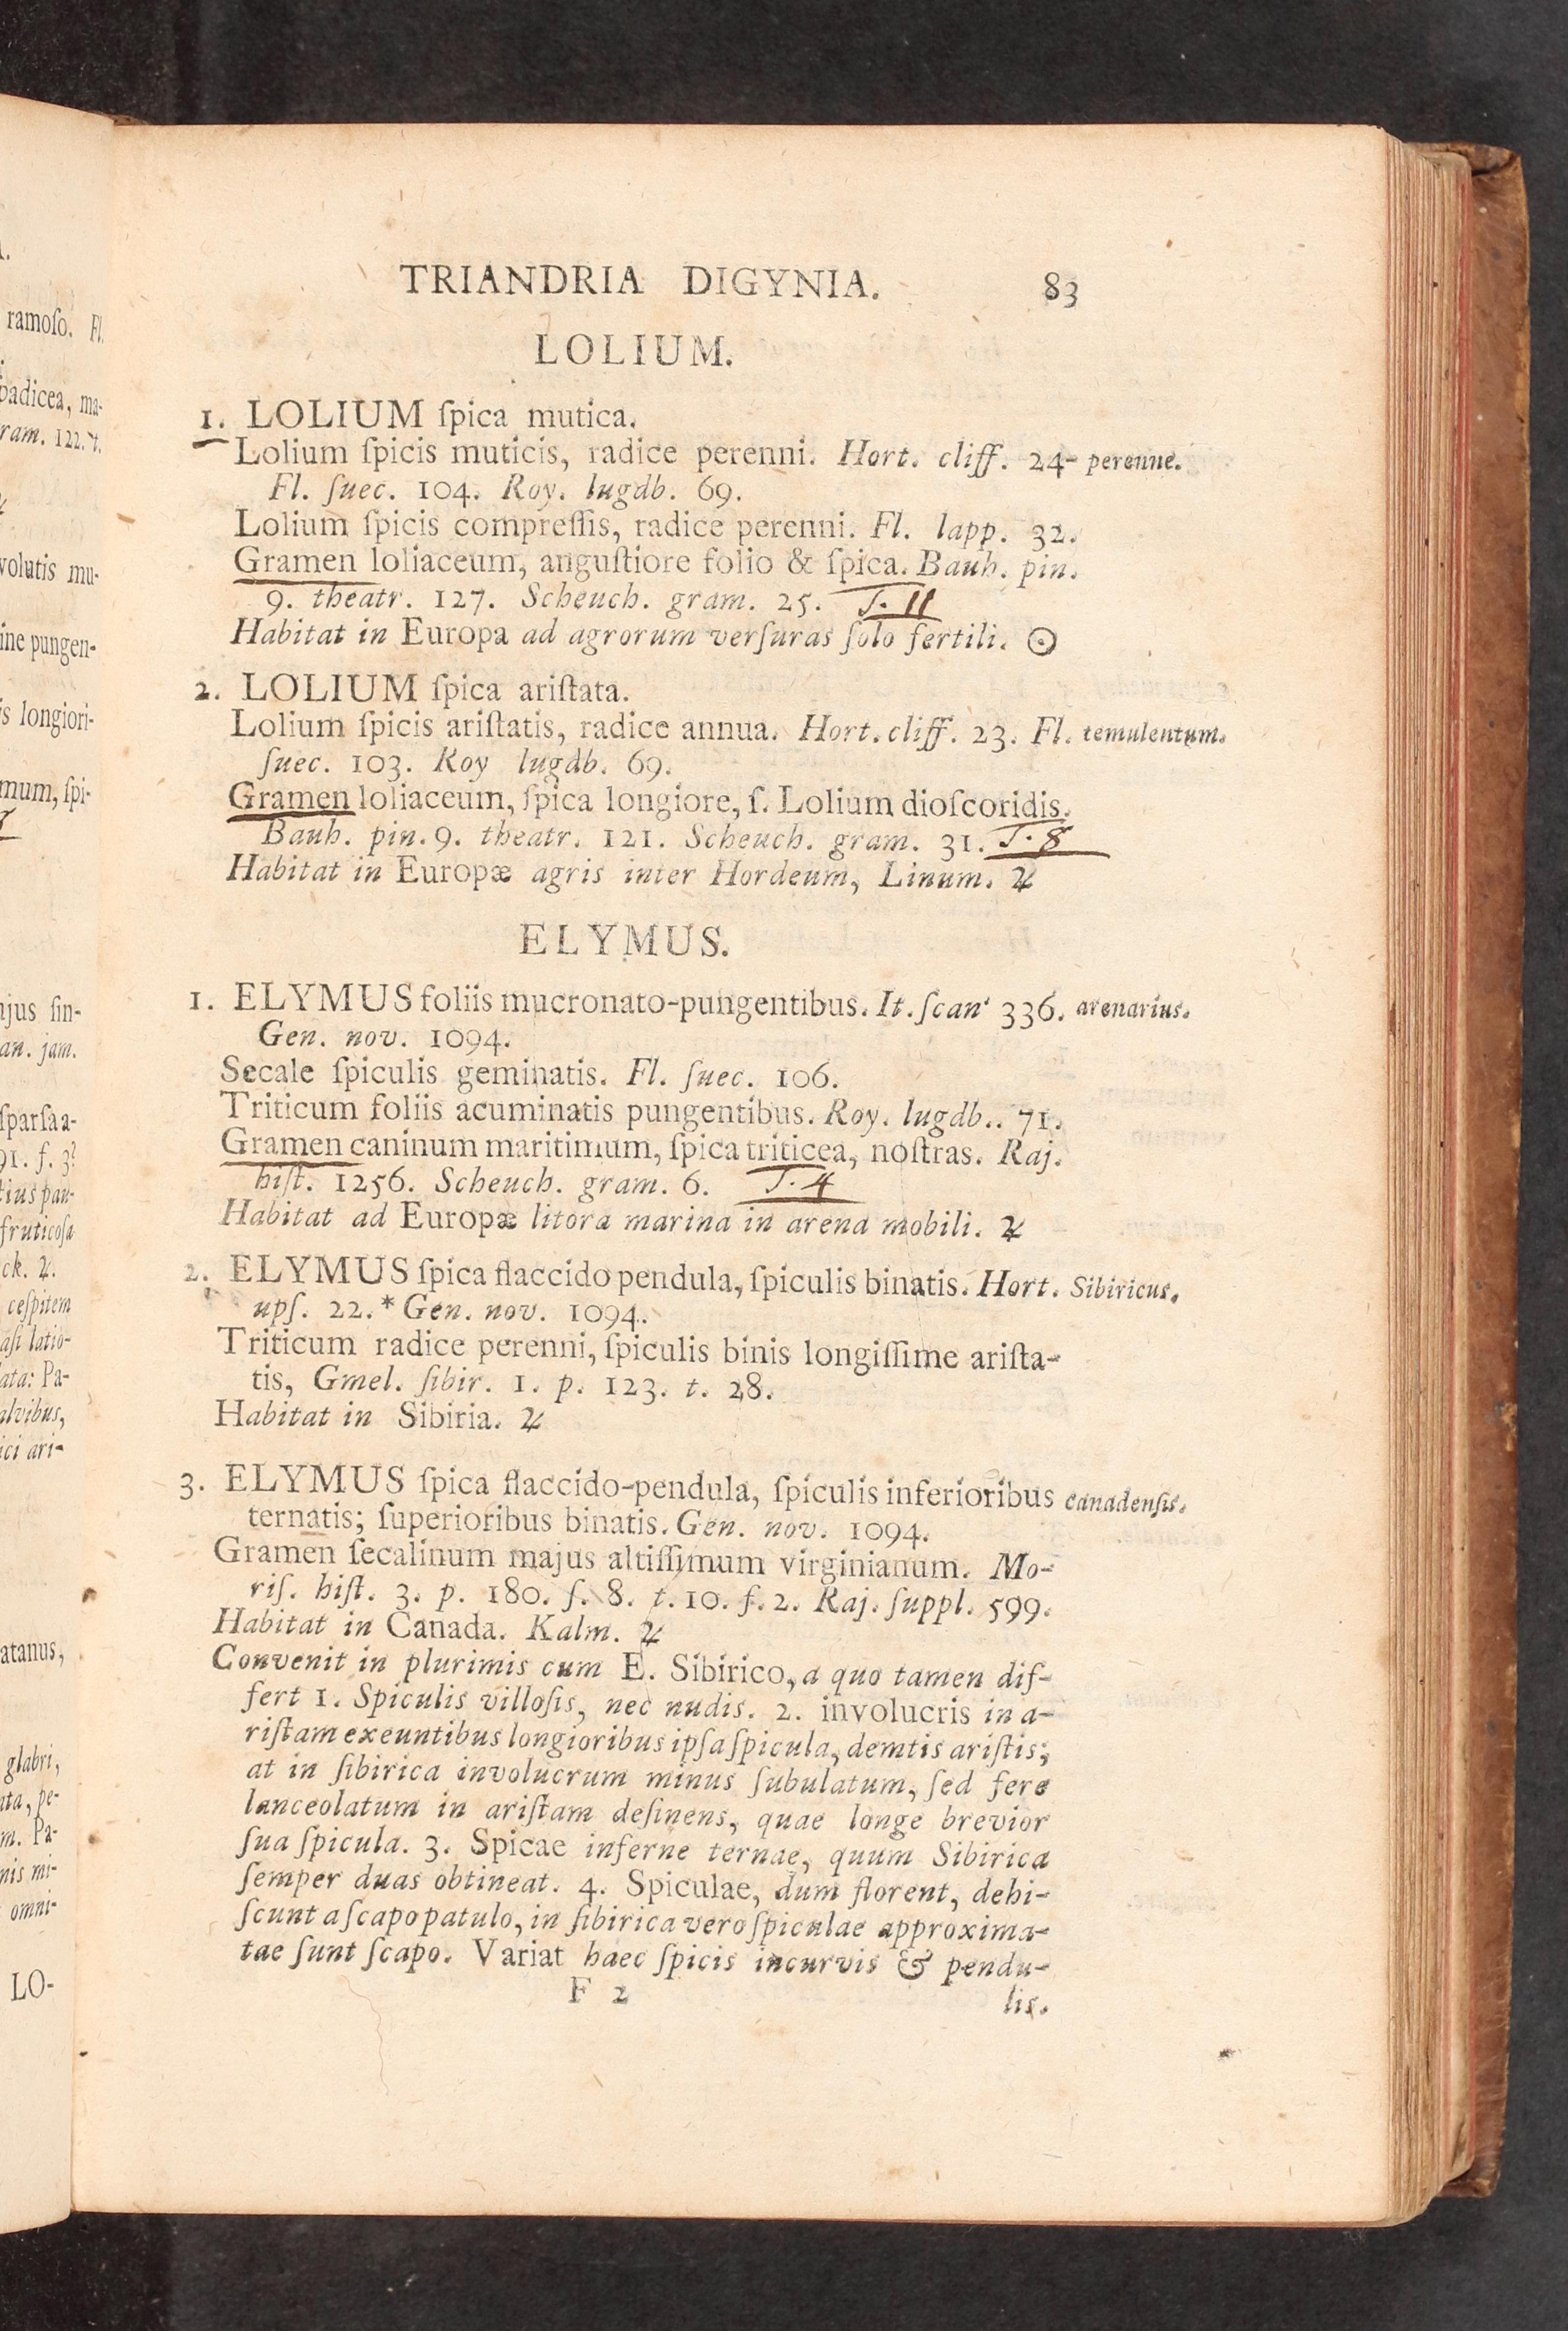 TRIANDRIA DIGYNIA. 83
LOLIUM.
1. LOLIUM ſpica mutica.
Lolium ſpicis muticis, radice perenni. Hort. cliff. 24- perenne.
Fl. ſuec. 104. Roy. lugdb. 69.
Lolium ſpicis compreſſis, radice perenni. Fl. lapp. 32.
Gramen loliaceum, anguſtiore folio & ſpica. Bauh. pin.
9. theatr. 127. Scheuch. gram. 25. T. 11
Habitat in Europa ad agrorum verſuras ſolo fertili. ☉
2. LOLIUM ſpica ariſtata.
Lolium ſpicis ariſtatis, radice annua. Hort. cliff. 23. Fl. temulentum.
ſuec. 103. Roy lugdb. 69.
Gramen loliaceum, ſpica longiore, ſ. Lolium dioſcoridis.
Bauh. pin. 9. theatr. 121. Scheuch. gram. 31. T. 8
Habitat in Europæ agris inter Hordeum, Linum. ♃
ELYMUS.
1. ELYMUS foliis mucronato-pungentibus. It. ſcan' 336. arenarius.
Gen. nov. 1094.
Secale ſpiculis geminatis. Fl. ſuec. 106.
Triticum foliis acuminatis pungentibus. Roy. lugdb.. 71.
Gramen caninum maritimum, ſpica triticea, noſtras. Raj.
hiſt. 1256. Scheuch. gram. 6. T. 4
Habitat ad Europæ litora marina in arena mobili. ♃
2. ELYMUS ſpica flaccido pendula, ſpiculis binatis. Hort. Sibiricus.
upſ. 22.* Gen. nov. 1094.
Triticum radice perenni, ſpiculis binis longiſſime ariſta-
tis, Gmel. ſibir. 1. p. 123. t. 28.
Habitat in Sibiria. ♃
3. ELYMUS ſpica flaccido-pendula, ſpiculis inferioribus canadenſis.
ternatis; ſuperioribus binatis. Gen. nov. 1094.
Gramen ſecalinum majus altiſſimum virginianum. Mo-
riſ. hiſt. 3. p. 180. ſ. 8. t. 10. f. 2. Raj. ſuppl. 599.
Habitat in Canada. Kalm. ♃
Convenit in plurimis cum E. Sibirico, a quo tamen dif-
fert 1. Spiculis villoſis, nec nudis. 2. involucris in a-
riſtam exeuntibus longioribus ipſa ſpicula, demtis ariſtis;
at in ſibirica involucrum minus ſubulatum, ſed fere
lanceolatum in ariſtam deſinens, quae longe brevior
ſua ſpicula. 3. Spicae inferne ternae, quum Sibirica
ſemper duas obtineat. 4. Spiculae, dum florent, dehi-
ſcunt a ſcapo patulo, in ſibirica vero ſpiculae approxima-
tae ſunt ſcapo. Variat haec ſpicis incurvis & pendu-
F 2 lis.
ramoſo. Fl.
padicea, ma-
ram. 122. t.
volutis mu-
ine pungen-
is longiori-
mum, ſpi-
ajus ſin-
an. jam.
ſparſa a-
91. f. 3?
tius pau-
fruticoſa
ck. ♃.
ceſpitem
aſi latio-
ata: Pa-
alvibus,
ici ari-
atanus,
glabri,
ata, pe-
m. Pa-
nis mi-
omni-
LO-